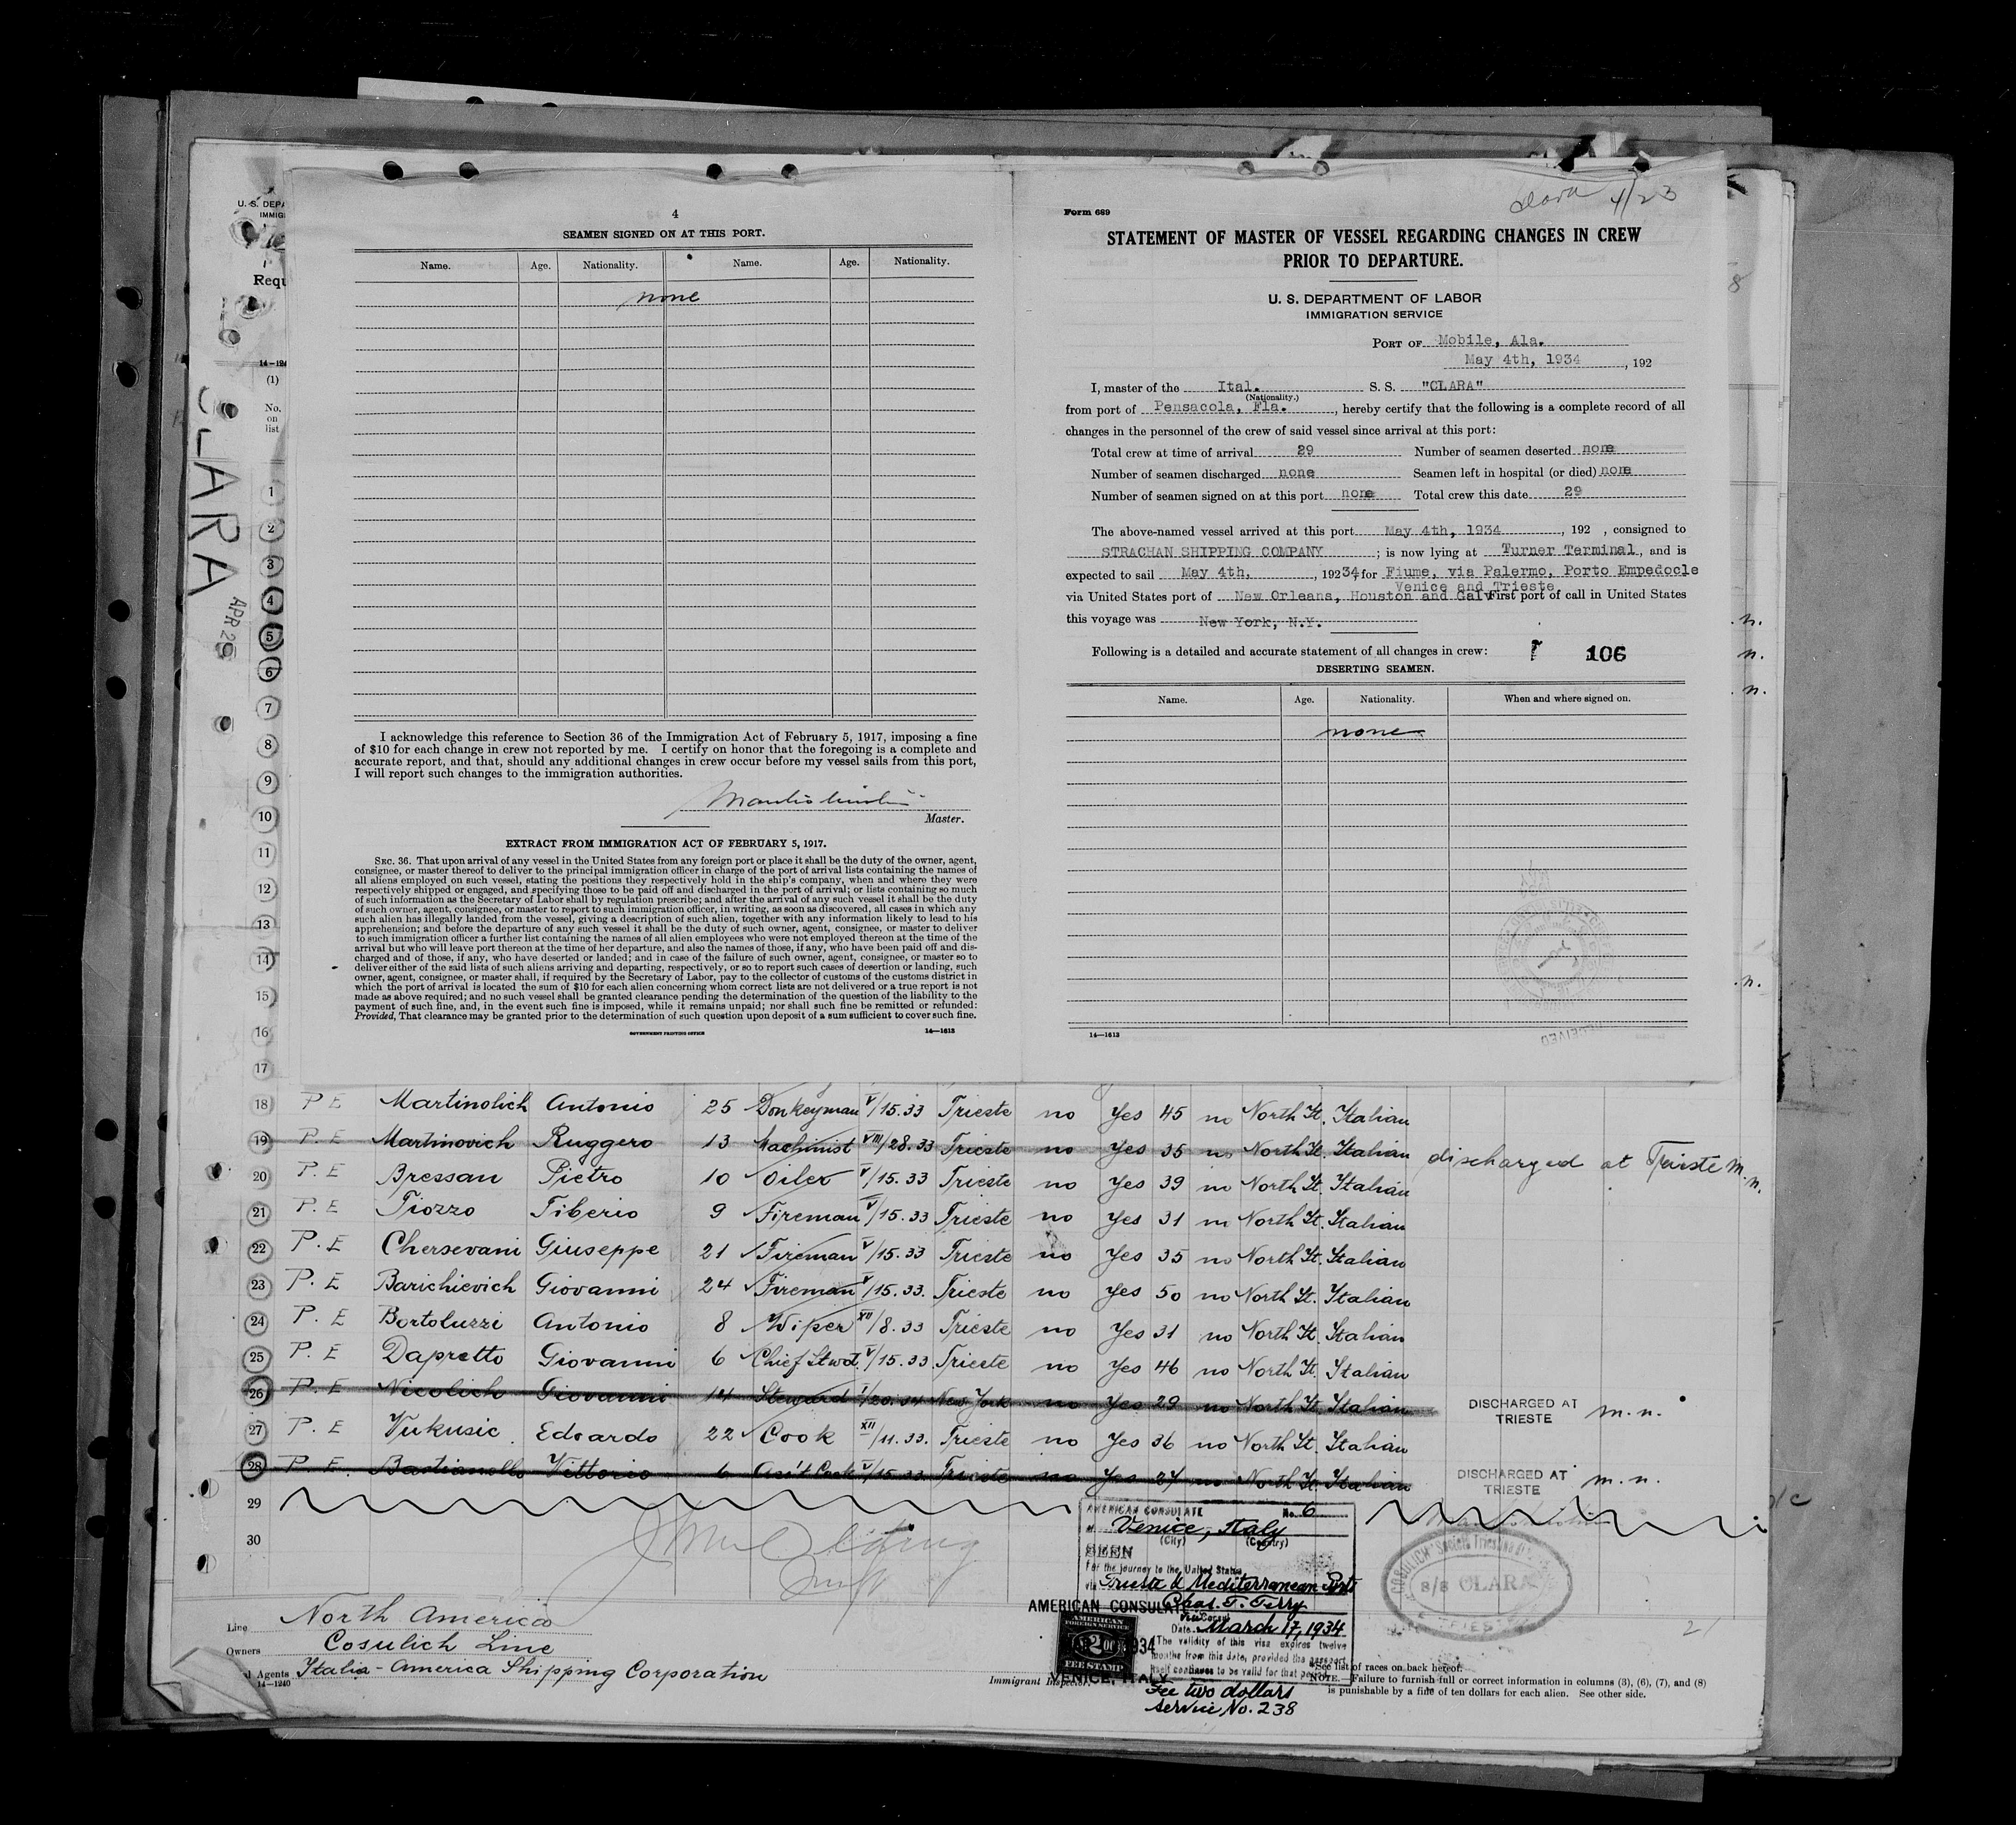 4
SEAMEN SIGNED ON AT THIS PORT.
Name. Age. Nationality. Name. Age. Nationality.
none
I acknowledge this reference to Section 36 of the Immigration Act of February 5, 1917, imposing a fine
of $10 for each change in crew not reported by me. I certify on honor that the foregoing is a complete and
accurate report, and that, should any additional changes in crew occur before my vessel sails from this port,
I will report such changes to the immigration authorities.
Master.
EXTRACT FROM IMMIGRATION ACT OF FEBRUARY 5, 1917.
SEC. 36. That upon arrival of any vessel in the United States from any foreign port or place it shall be the duty of the owner, agent,
consignee, or master thereof to deliver to the principal immigration officer in charge of the port of arrival lists containing the names of
all aliens employed on such vessel, stating the positions they respectively hold in the ship's company, when and where they were
respectively shipped or engaged, and specifying those to be paid off and discharged in the port of arrival; or lists containing so much
of such information as the Secretary of Labor shall by regulation prescribe; and after the arrival of any such vessel it shall be the duty
of such owner, agent, consignee, or master to report to such immigration officer, in writing, as soon as discovered, all cases in which any
such alien has illegally landed from the vessel, giving a description of such alien, together with any information likely to lead to his
apprehension; and before the departure of any such vessel it shall be the duty of such owner, agent, consignee, or master to deliver
to such immigration officer a further list containing the names of all alien employees who were not employed thereon at the time of the
arrival but who will leave port thereon at the time of her departure, and also the names of those, if any, who have been paid off and dis-
charged and of those, if any, who have deserted or landed; and in case of the failure of such owner, agent, consignee, or master so to
deliver either of the said lists of such aliens arriving and departing, respectively, or so to report such cases of desertion or landing, such
owner, agent, consignee, or master shall, if required by the Secretary of Labor, pay to the collector of customs of the customs district in
which the port of arrival is located the sum of $10 for each alien concerning whom correct lists are not delivered or a true report is not
made as above required; and no such vessel shall be granted clearance pending the determination of the question of the liability to the
payment of such fine, and, in the event such fine is imposed, while it remains unpaid; nor shall such fine be remitted or refunded:
Provided, That clearance may be granted prior to the determination of such question upon deposit of a sum sufficient to cover such fine.
GOVERNMENT PRINTING OFFICE 14—1613
Clara 4/23
Form 689
STATEMENT OF MASTER OF VESSEL REGARDING CHANGES IN CREW
PRIOR TO DEPARTURE.
U. S. DEPARTMENT OF LABOR
IMMIGRATION SERVICE
PORT OF Mobile, Ala.
May 4th, 1934, 192
I, master of the Ital. S. S. "CLARA"
(Nationality.)
from port of Pensacola, Fla., hereby certify that the following is a complete record of all
changes in the personnel of the crew of said vessel since arrival at this port:
Total crew at time of arrival 29 Number of seamen deserted none
Number of seamen discharged none Seamen left in hospital (or died) none
Number of seamen signed on at this port none Total crew this date 29
The above-named vessel arrived at this port May 4th, 1934, 192 , consigned to
STRACHAN SHIPPING COMPANY; is now lying at Turner Terminal, and is
expected to sail May 4th, , 19234, for Fiume, via Palermo, Porto Empedocle
Venice and Trieste
via United States port of New Orleans, Houston and Galv First port of call in United States
this voyage was New York, N.Y.
Following is a detailed and accurate statement of all changes in crew: 106
DESERTING SEAMEN.
Name. Age. Nationality. When and where signed on.
none
14—1613
U. S. DEPA
IMMIG
Requ
14—124
(1)
No.
on
list
CLARA
APR 29
1
2
3
4
5
6
7
8
9
10
11
12
13
14
15
16
17
18 P E Martinolich Antonio 25 Donkeyman V/15.33 Trieste no Yes 45 no North It. Italian
19 P. E Martinovich Ruggero 13 Machinist VIII/28.33 Trieste no Yes 35 no North It. Italian discharged at Trieste m.n.
20 P. E Bressan Pietro 10 Oiler V/15.33 Trieste no Yes 39 no North It. Italian
21 P. E Tiozzo Tiberio 9 Fireman V/15.33 Trieste no Yes 31 no North It. Italian
22 P. E Chersevani Giuseppe 21 Fireman V/15.33 Trieste no Yes 35 no North It. Italian
23 P. E Barichievich Giovanni 24 Fireman V/15.33. Trieste no Yes 50 no North It. Italian
24 P. E Bortoluzzi Antonio 8 Wiper XII/8.33 Trieste no Yes 31 no North It. Italian
25 P. E Dapretto Giovanni 6 Chief Stwd. V/15.33 Trieste no Yes 46 no North It. Italian
26 P. E Nicolich Giovanni 14 Steward I/20.34 New York no Yes 29 no North It. Italian DISCHARGED AT TRIESTE m.n.
27 P. E Vukusic Edoardo 22 Cook XII/11.33. Trieste no Yes 36 no North It. Italian
28 P. E. Bastianello Vittorio 6 Ass't Cook V/15.33 Trieste no Yes 27 no North It. Italian DISCHARGED AT TRIESTE m.n.
29
30
AMERICAN CONSULATE No. 6
at Venice, Italy
(City) (Country)
SEEN
For the journey to the United States
via Trieste & Mediterranean Ports
AMERICAN CONSULATE Chas. T. Terry
Vice Consul
Date March 17, 1934
The validity of this visa expires twelve
months from this date, provided the passport
itself continues to be valid for that period
AMERICAN
FOREIGN SERVICE
$2.00
FEE STAMP
VENICE, ITALY
Fee two dollars
Service No. 238
COSULICH
S/S CLARA
TRIESTE
Line North America
Owners Cosulich Line
al Agents Italia-America Shipping Corporation
14—1240
Immigrant Inspector.
*See list of races on back hereof.
NOTE.—Failure to furnish full or correct information in columns (3), (6), (7), and (8)
is punishable by a fine of ten dollars for each alien. See other side.